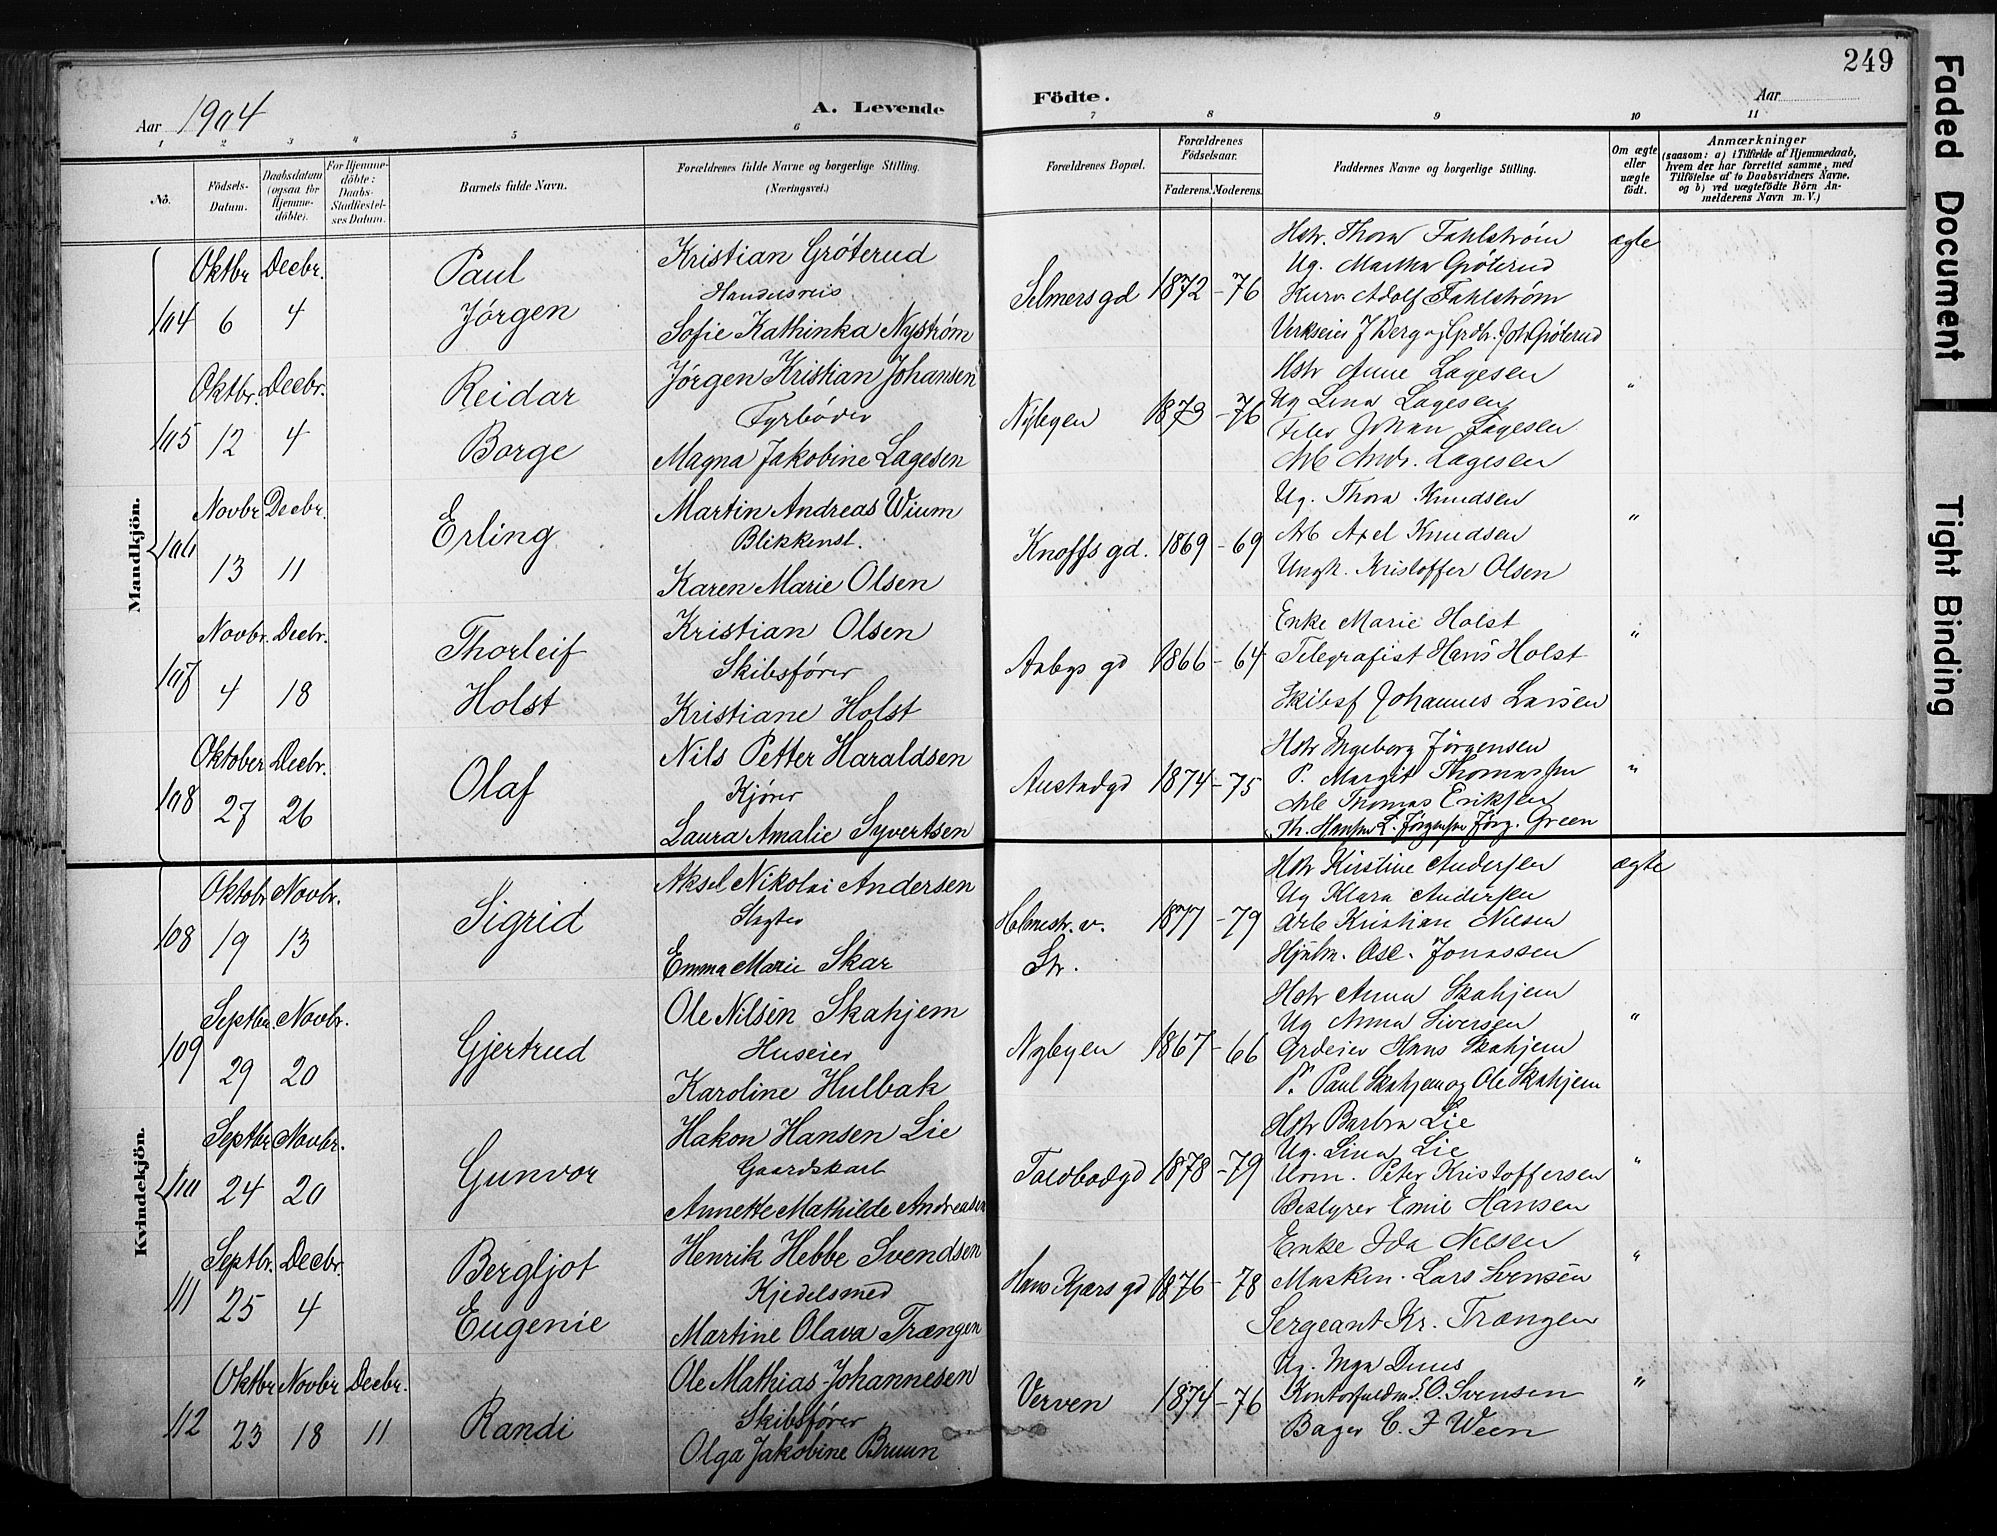 249
Aar 1904
A. Levende Födte.
Aar
1 2 3 4 5 6 7 8 9 10 11
No.
Födsels-Datum.
Daabsdatum (ogsaa for Hjemme-döbte).
For Hjemme-döbte: Daabs-Stadfæstel-ses Datum.
Barnets fulde Navn.
Forældrenes fulde Navne og borgerlige Stilling. (Næringsvei.)
Forældrenes Bopæl.
Forældrenes Födselsaar.
Faderens. Moderens.
Faddernes Navne og borgerlige Stilling.
Om ægte eller uægte født.
Anmærkninger
(saasom: a) i Tilfælde af Hjemmedaab, hvem der har forrettet samme, med Tilföielse af to Daabsvidners Navne. og b) ved uægtefödte Börn An-melderens Navn m. V.)
Mandkjön.
104 Oktbr 6 Decbr. 4
Paul Jörgen
Kristian Gröterud
Handelsreis.
Sofie Kathinka Nyström
Selmers gd 1872 - 76
Hstr. Thora Fahlström
Ug. Martha Gröterud
Kurv. Adolf Fahlström
Verkseier J Berg og Grdbr. Joh Gröterud
ægte
105 Oktbr. 12 Decbr. 4
Reidar Borge
Jörgen Kristian Johansen
Fyrbøder
Magna Jakobine Lagesen
Nybyen 1873 - 76
Hstr Anne Lagesen
Ug Lina Lagesen
Johan Lagesen
Arb Andr. Lagesen
"
106 Novbr 13 Decbr. 11
Erling
Martin Andreas Wium
Blikkensl.
Karen Marie Olsen
Knoffs gd. 1869 - 69
Ug. Thora Knudsen
Arb Axel Knudsen
Ungk. Kristoffer Olsen
"
107 Novbr. 4 Decbr. 18
Thorleif Holst
Kristian Olsen
Skibsfører
Kristiane Holst
Aabys gd 1866 - 64
Enke Marie Holst
Telegrafist Hans Holst
Skibsf Johannes Larsen
"
108 Oktober 27 Decbr. 26
Olaf
Nils Petter Haraldsen
Kjører
Laura Amalie Syvertsen
Austadgd 1874 - 75
Hstr Ingeborg Jørgensen
P. Margit Thomassen
Arb Thomas Eriksen
Th. Hansen L. Jørgensen Jørg. Green
"
Kvindekjön.
108 Oktobr 19 Novbr. 13
Sigrid
Aksel Nikolai Andersen
Slagter
Emma Marie Skar
Holmestr. v. Str. 1877 - 79
Hstr Kirstine Andersen
Ug Klara Andersen
Arb Kristian Nilsen
Hjulm. Osc. Jonassen
ægte
109 Septbr. 29 Novbr. 20
Gjertrud
Ole Nilsen Skahjem
Huseier
Karoline Hulbak
Nybyen 1867 - 66
Hstr Anna Skahjem
Ug Anna Siversen
Grdeier Hans Skahjem
P. Paul Skahjem og Ole Skahjem
"
110 Septbr 24 Novbr. 20
Gunvor
Hakon Hansen Lie
Gaardskarl
Annette Mathilde Andreasen
Toldbodgd 1878 - 79
Hstr Barbra Lie
Ug. Lina Lie
Urm. Peter Kristoffersen
Bestyrer Emil Hansen
"
111 Septbr. 25 Decbr. 4
Bergljot Eugenie
Henrik Hebbe Svendsen
Kjedelsmed
Martine Olava Trængen
Hans Kjærs gd 1876 - 78
Enke Ida Nilsen
Maskin. Lars Svensen
Sergeant Kr. Trængen
"
112 Oktbr 23 Novbr 18 Decbr. 11
Randi
Ole Mathias Johannesen
Skibsfører
Olga Jakobine Bruun
Verven 1874 - 76
Ug. Inga Duus
Kontorfuldm S. O. Svensen
Bager C. F Ween
"
Faded Document
Tight Binding